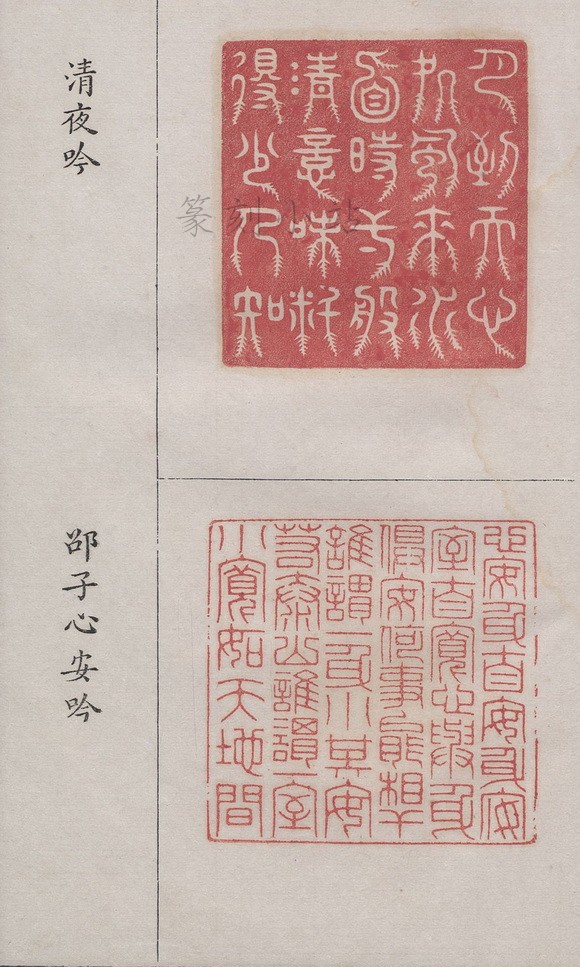 清夜吟
月到天心
処風來水
面時一般
清意味料
得少人知
篆刻小站
邵子心安吟
心安身自安身安
室自寬心與身
俱安何事能相干
誰謂一身小其安
若泰山誰謂一室
小寬如天地間